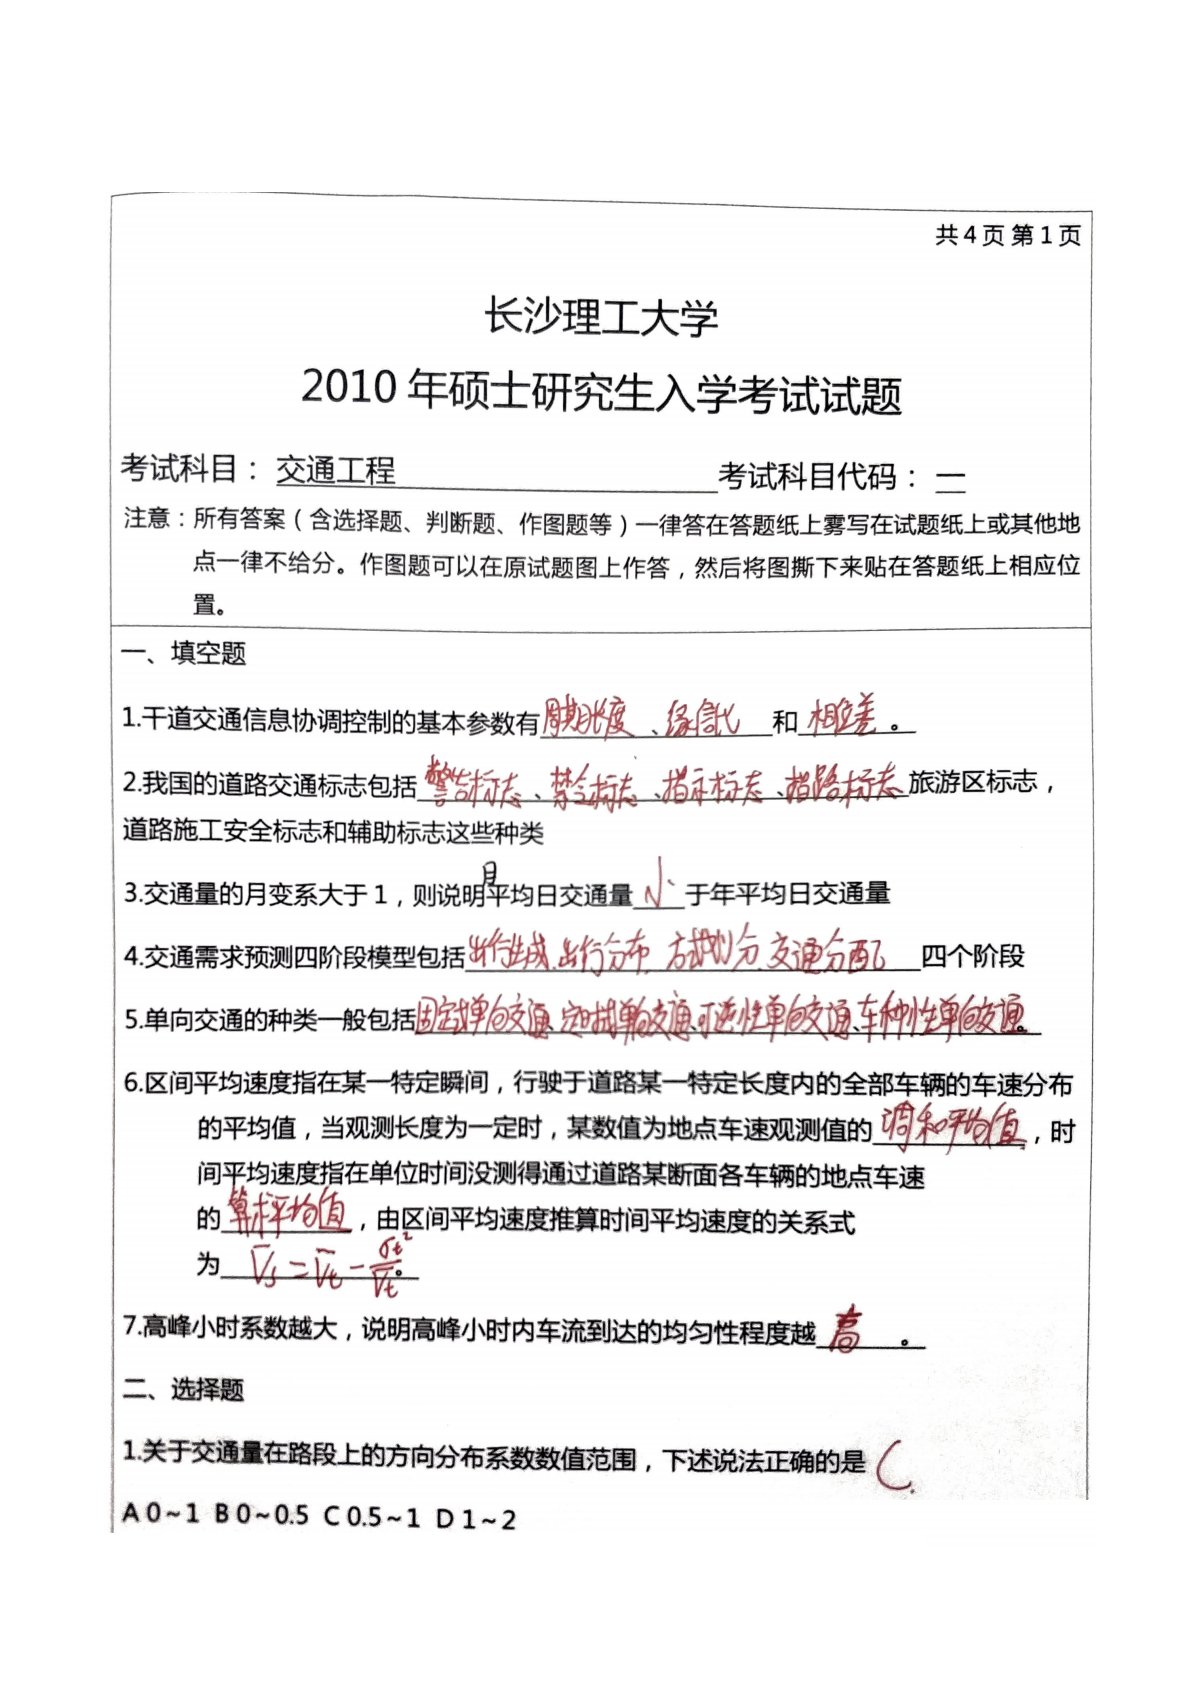 共4页 第1页
长沙理工大学
2010年硕士研究生入学考试试题
考试科目：交通工程 考试科目代码：一
注意：所有答案（含选择题、判断题、作图题等）一律答在答题纸上雾写在试题纸上或其他地
点一律不给分。作图题可以在原试题图上作答，然后将图撕下来贴在答题纸上相应位
置。
一、填空题
1.干道交通信息协调控制的基本参数有周期长度、绿信比和相位差。
2.我国的道路交通标志包括警告标志、禁令标志、指示标志、指路标志旅游区标志，
道路施工安全标志和辅助标志这些种类
月
3.交通量的月变系大于1，则说明平均日交通量小于年平均日交通量
4.交通需求预测四阶段模型包括出行生成、出行分布、方式划分、交通分配四个阶段
5.单向交通的种类一般包括固定式单向交通、定时式单向交通、可逆性单向交通、车种性单向交通。
6.区间平均速度指在某一特定瞬间，行驶于道路某一特定长度内的全部车辆的车速分布
的平均值，当观测长度为一定时，某数值为地点车速观测值的调和平均值，时
间平均速度指在单位时间没测得通过道路某断面各车辆的地点车速
的算术平均值，由区间平均速度推算时间平均速度的关系式
为 V̄s = V̄t − σt²/V̄t。
7.高峰小时系数越大，说明高峰小时内车流到达的均匀性程度越高。
二、选择题
1.关于交通量在路段上的方向分布系数数值范围，下述说法正确的是 C.
A 0~1 B 0~0.5 C 0.5~1 D 1~2